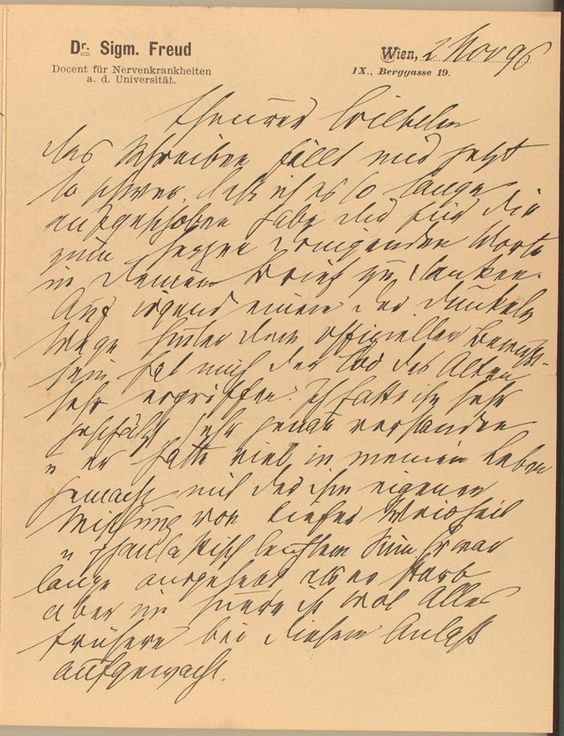 Dr. Sigm. Freud
Docent für Nervenkrankheiten
a. d. Universität.
Wien, 2 Nov 96
IX., Berggasse 19.
Theurer Wilhelm
das Schreiben fällt mir jetzt
so schwer, daß ich es so lange
aufgeschoben habe, dir für die
zum Herzen dringenden Worte
in deinem Brief zu danken.
Auf irgend einem der dunkeln
Wege hinter dem officiellen Bewußt-
sein hat mich der Tod des Alten
sehr ergriffen. Ich hatte ihn sehr
geschätzt sehr genau verstanden
u er hatte viel in meinem Leben
gemacht mit der ihm eigenen
Mischung von tiefer Weisheit
u phantastisch leichtem Sinn. Er war
lange ausgelebt als er starb
aber im Innern ist wol alles
Frühere bei diesem Anlaß
aufgewacht.